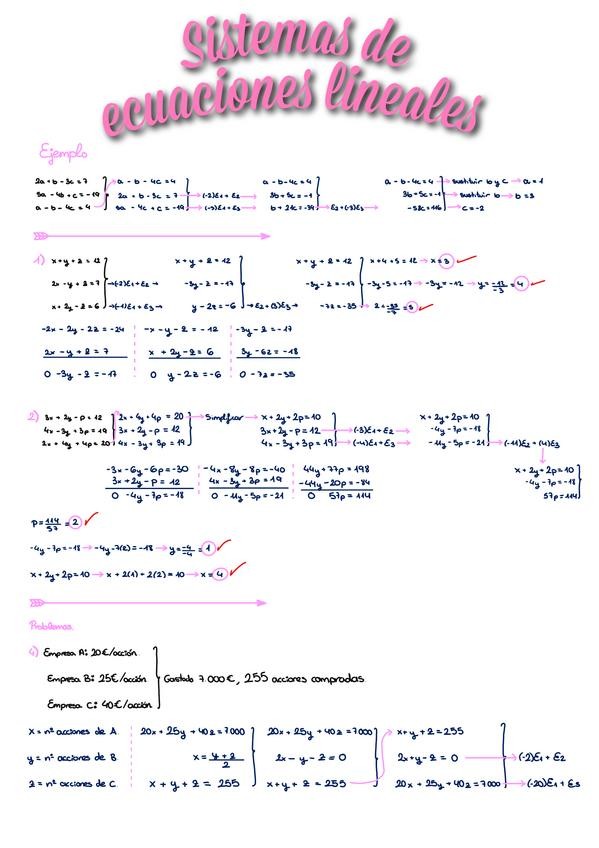 Sistemas de
ecuaciones lineales
Ejemplo
2a + b - 3c = 7 a - b - 4c = 4 a - b - 4c = 4 a - b - 4c = 4 → sustituir b y c → a = 1
5a - 4b + c = -19 2a + b - 3c = 7 → (-2)E1 + E2 3b + 5c = -1 3b + 5c = -1 → sustituir b → b = 3
a - b - 4c = 4 5a - 4b + c = -19 → (-5)E1 + E3 b + 21c = -39 → E2 + (-3)E3 → -58c = 116 → c = -2
1) x + y + z = 12 x + y + z = 12 x + y + z = 12 x + 4 + 5 = 12 → x = 3
2x - y + z = 7 → (-2)E1 + E2 → -3y - z = -17 -3y - z = -17 → -3y - 5 = -17 → -3y = -12 → y = -12/-3 = 4
x + 2y - z = 6 → (-1)E1 + E3 → y - 2z = -6 → E2 + (3)E3 → -7z = -35 → z = -35/-7 = 5
-2x - 2y - 2z = -24 -x - y - z = -12 -3y - z = -17
2x - y + z = 7 x + 2y - z = 6 3y - 6z = -18
0 -3y - z = -17 0 y - 2z = -6 0 -7z = -35
2) 3x + 2y - p = 12 2x + 4y + 4p = 20 → Simplificar → x + 2y + 2p = 10 x + 2y + 2p = 10
4x - 3y + 3p = 19 3x + 2y - p = 12 3x + 2y - p = 12 → (-3)E1 + E2 → -4y - 7p = -18
2x + 4y + 4p = 20 4x - 3y + 3p = 19 4x - 3y + 3p = 19 → (-4)E1 + E3 → -11y - 5p = -21 → (-11)E2 + (4)E3
-3x - 6y - 6p = -30 -4x - 8y - 8p = -40 44y + 77p = 198 x + 2y + 2p = 10
3x + 2y - p = 12 4x - 3y + 3p = 19 -44y - 20p = -84 -4y - 7p = -18
0 -4y - 7p = -18 0 -11y - 5p = -21 0 57p = 114 57p = 114
p = 114/57 = 2
-4y - 7p = -18 → -4y - 7(2) = -18 → y = -4/-4 = 1
x + 2y + 2p = 10 → x + 2(1) + 2(2) = 10 → x = 4
Problemas
4) Empresa A: 20€/acción
Empresa B: 25€/acción Gastado 7.000€, 255 acciones compradas
Empresa C: 40€/acción
x = nº acciones de A 20x + 25y + 40z = 7000 20x + 25y + 40z = 7000 x + y + z = 255
y = nº acciones de B x = y + z/2 2x - y - z = 0 2x - y - z = 0 → (-2)E1 + E2
z = nº acciones de C x + y + z = 255 x + y + z = 255 20x + 25y + 40z = 7000 → (-20)E1 + E3